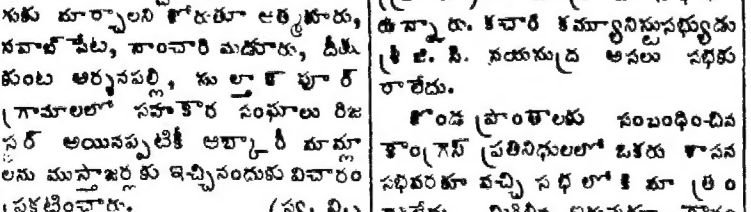 గుకు మార్చాలని కోరుతూ ఆత్మకూరు,
నవాబ్ పేట, కాంచారి మడూరు, దీకు
కుంట ఆర్సనపల్లి, సుల్తాన్ పూర్
గ్రామాలలో సహకార సంఘాలు రిజ
స్టర్ అయినప్పటికీ ఆబ్కారీ మామ్లా
లను ముస్తాజర్లకు ఇచ్చినందుకు విచారం
ప్రకటించారు.
ఉన్నారు. కచారి కమ్యూనిస్టుసభ్యుడు
శ్రీ జి. సి. నయనుద్ర అసలు సభకు
రాలేదు.
కొండ ప్రాంతాలకు సంబంధించిన
కాంగ్రెస్ ప్రతినిధులలో ఒకరు శాసన
సభివరకూ వచ్చి సభ లోకి మాత్రం